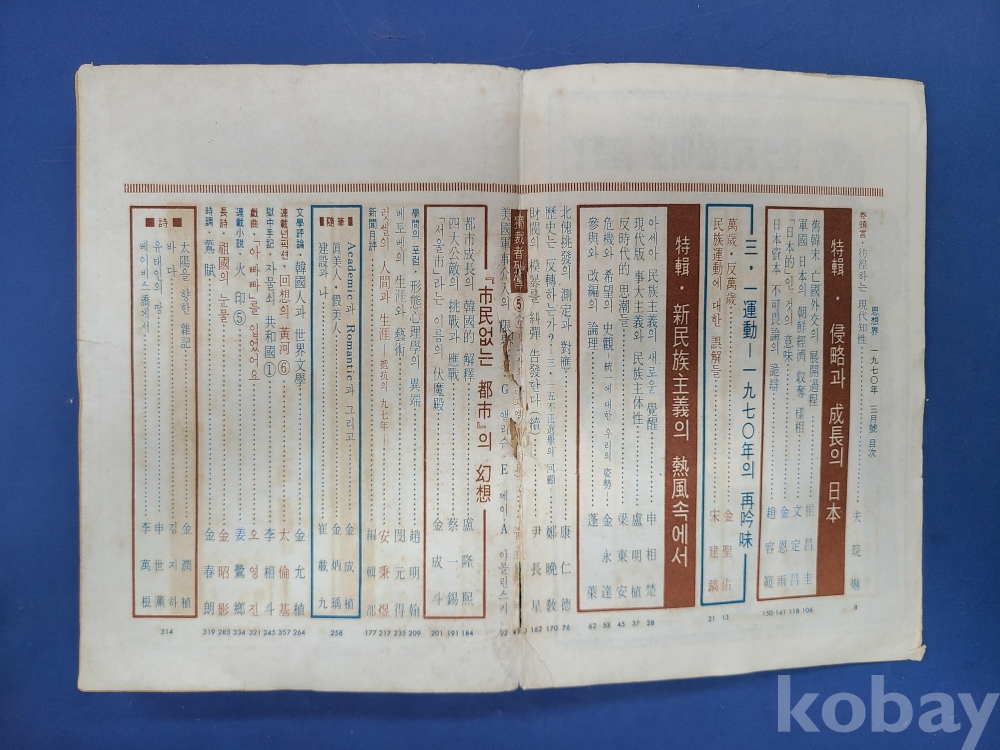 思想界 一九七〇年 三月號 目次
卷頭言·彷徨하는 現代知性 夫琓爀 8
特輯·侵略과 成長의 日本
舊韓末 亡國外交의 展開過程 崔昌圭 106
軍國 日本의 朝鮮經濟 収奪 様相 文定昌 118
「日本的」인 것의 意味 金恩雨 141
日本資本 不可畏論의 詭辯 趙容範 150
三·一運動—一九七〇年의 再吟味
萬歲·反萬歲 金聖佑 13
民族運動에 대한 誤解들 宋建鎬 21
特輯·新民族主義의 熱風속에서
아세아 民族主義의 새로운 覺醒 申相楚 28
現代版 事大主義와 民族主体性 盧明植 37
反時代的 思潮들 梁東安 45
危機와 希望의 史觀 에 대한 우리의 姿勢 金永達 53
參與와 改編의 論理 蓬萊 62
北傀挑發의 測定과 對應 康仁德 76
歷史는 反轉하는가?=三·一五不正選擧의 回顧 鄭晩教 170
財閥의 横暴를 糾彈 告發한다(續) 尹長星 162
獨裁者列傳⑤
美國軍事人의 限 G 앨리슨·E 메이 A 야몰린스키 92
『市民없는 都市』의 幻想
都市成長의 韓國的 解釋 盧隆熙 184
四大公敵의 挑戰과 應戰 蔡一錫 191
「서울市」라는 이름의 伏魔殿 金成斗 201
學問의 포럼·形態心理學의 異端 趙明翰 209
베토벤의 生涯와 藝術 閔元得 235
럿셀의 人間과 生涯 抵抗의 九七年 安秉煜 217
新聞月評 編輯部 177
隨筆 258
Academic과 Romantic과 그리고 金成植
眞美人·假美人 金炳瑀
建設과 나 崔載九
文學評論·韓國人과 世界文學 金允植 264
連載넌픽션·回想의 黃河⑥ 太倫基 357
獄中手記·자물쇠 共和國① 李相斗 245
戱曲·「아빠빠」를 입었어요 오영진 321
連載小説·火印⑤ 姜鶯鄕 334
長詩·祖國의 눈물 金昭影 283
時調·鶯賦 金春朗 319
詩 314
太陽을 향한 雜記 金潤薰
바다 김지하
유태인의 망 申世
베이비스橋에서 李萬根
kobay